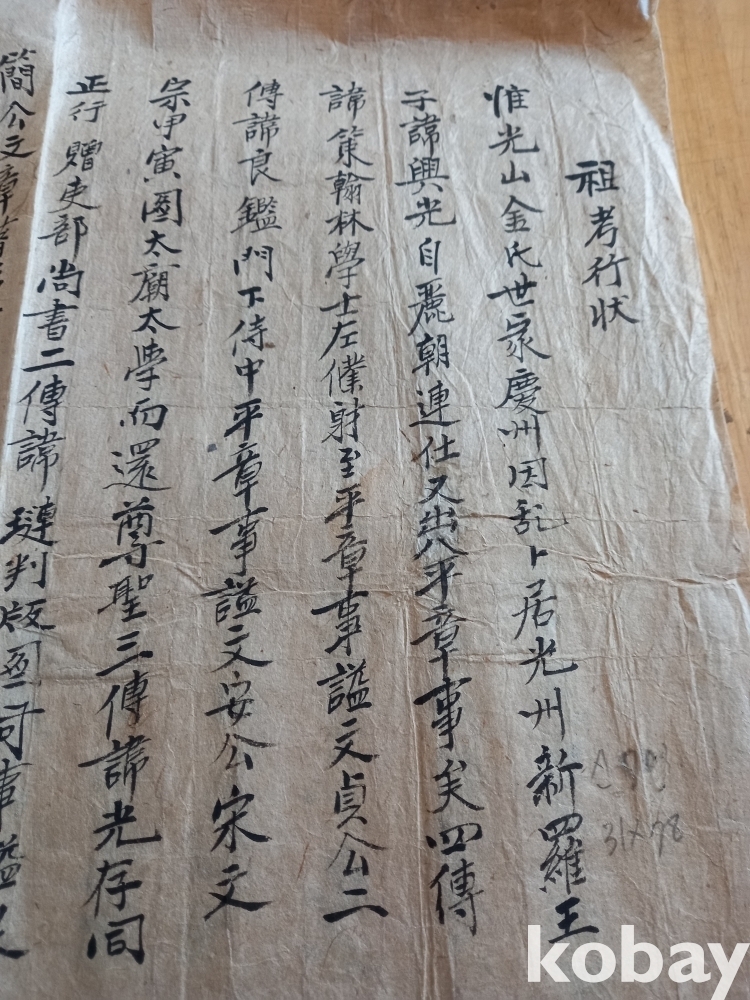 祖考行狀
惟光山金氏世家慶州因乱卜居光州新羅王
子諱興光自麗朝連仕又出八平章事矣四傳
諱策翰林學士左僕射至平章事謚文貞公二
傳諱良鑑門下侍中平章事謚文安公宋文
宗甲寅圖太廟太學而還尊聖三傳諱光存同
正行贈吏部尚書二傳諱璉判版圖司事謚良
簡公文章
31×78
kobay